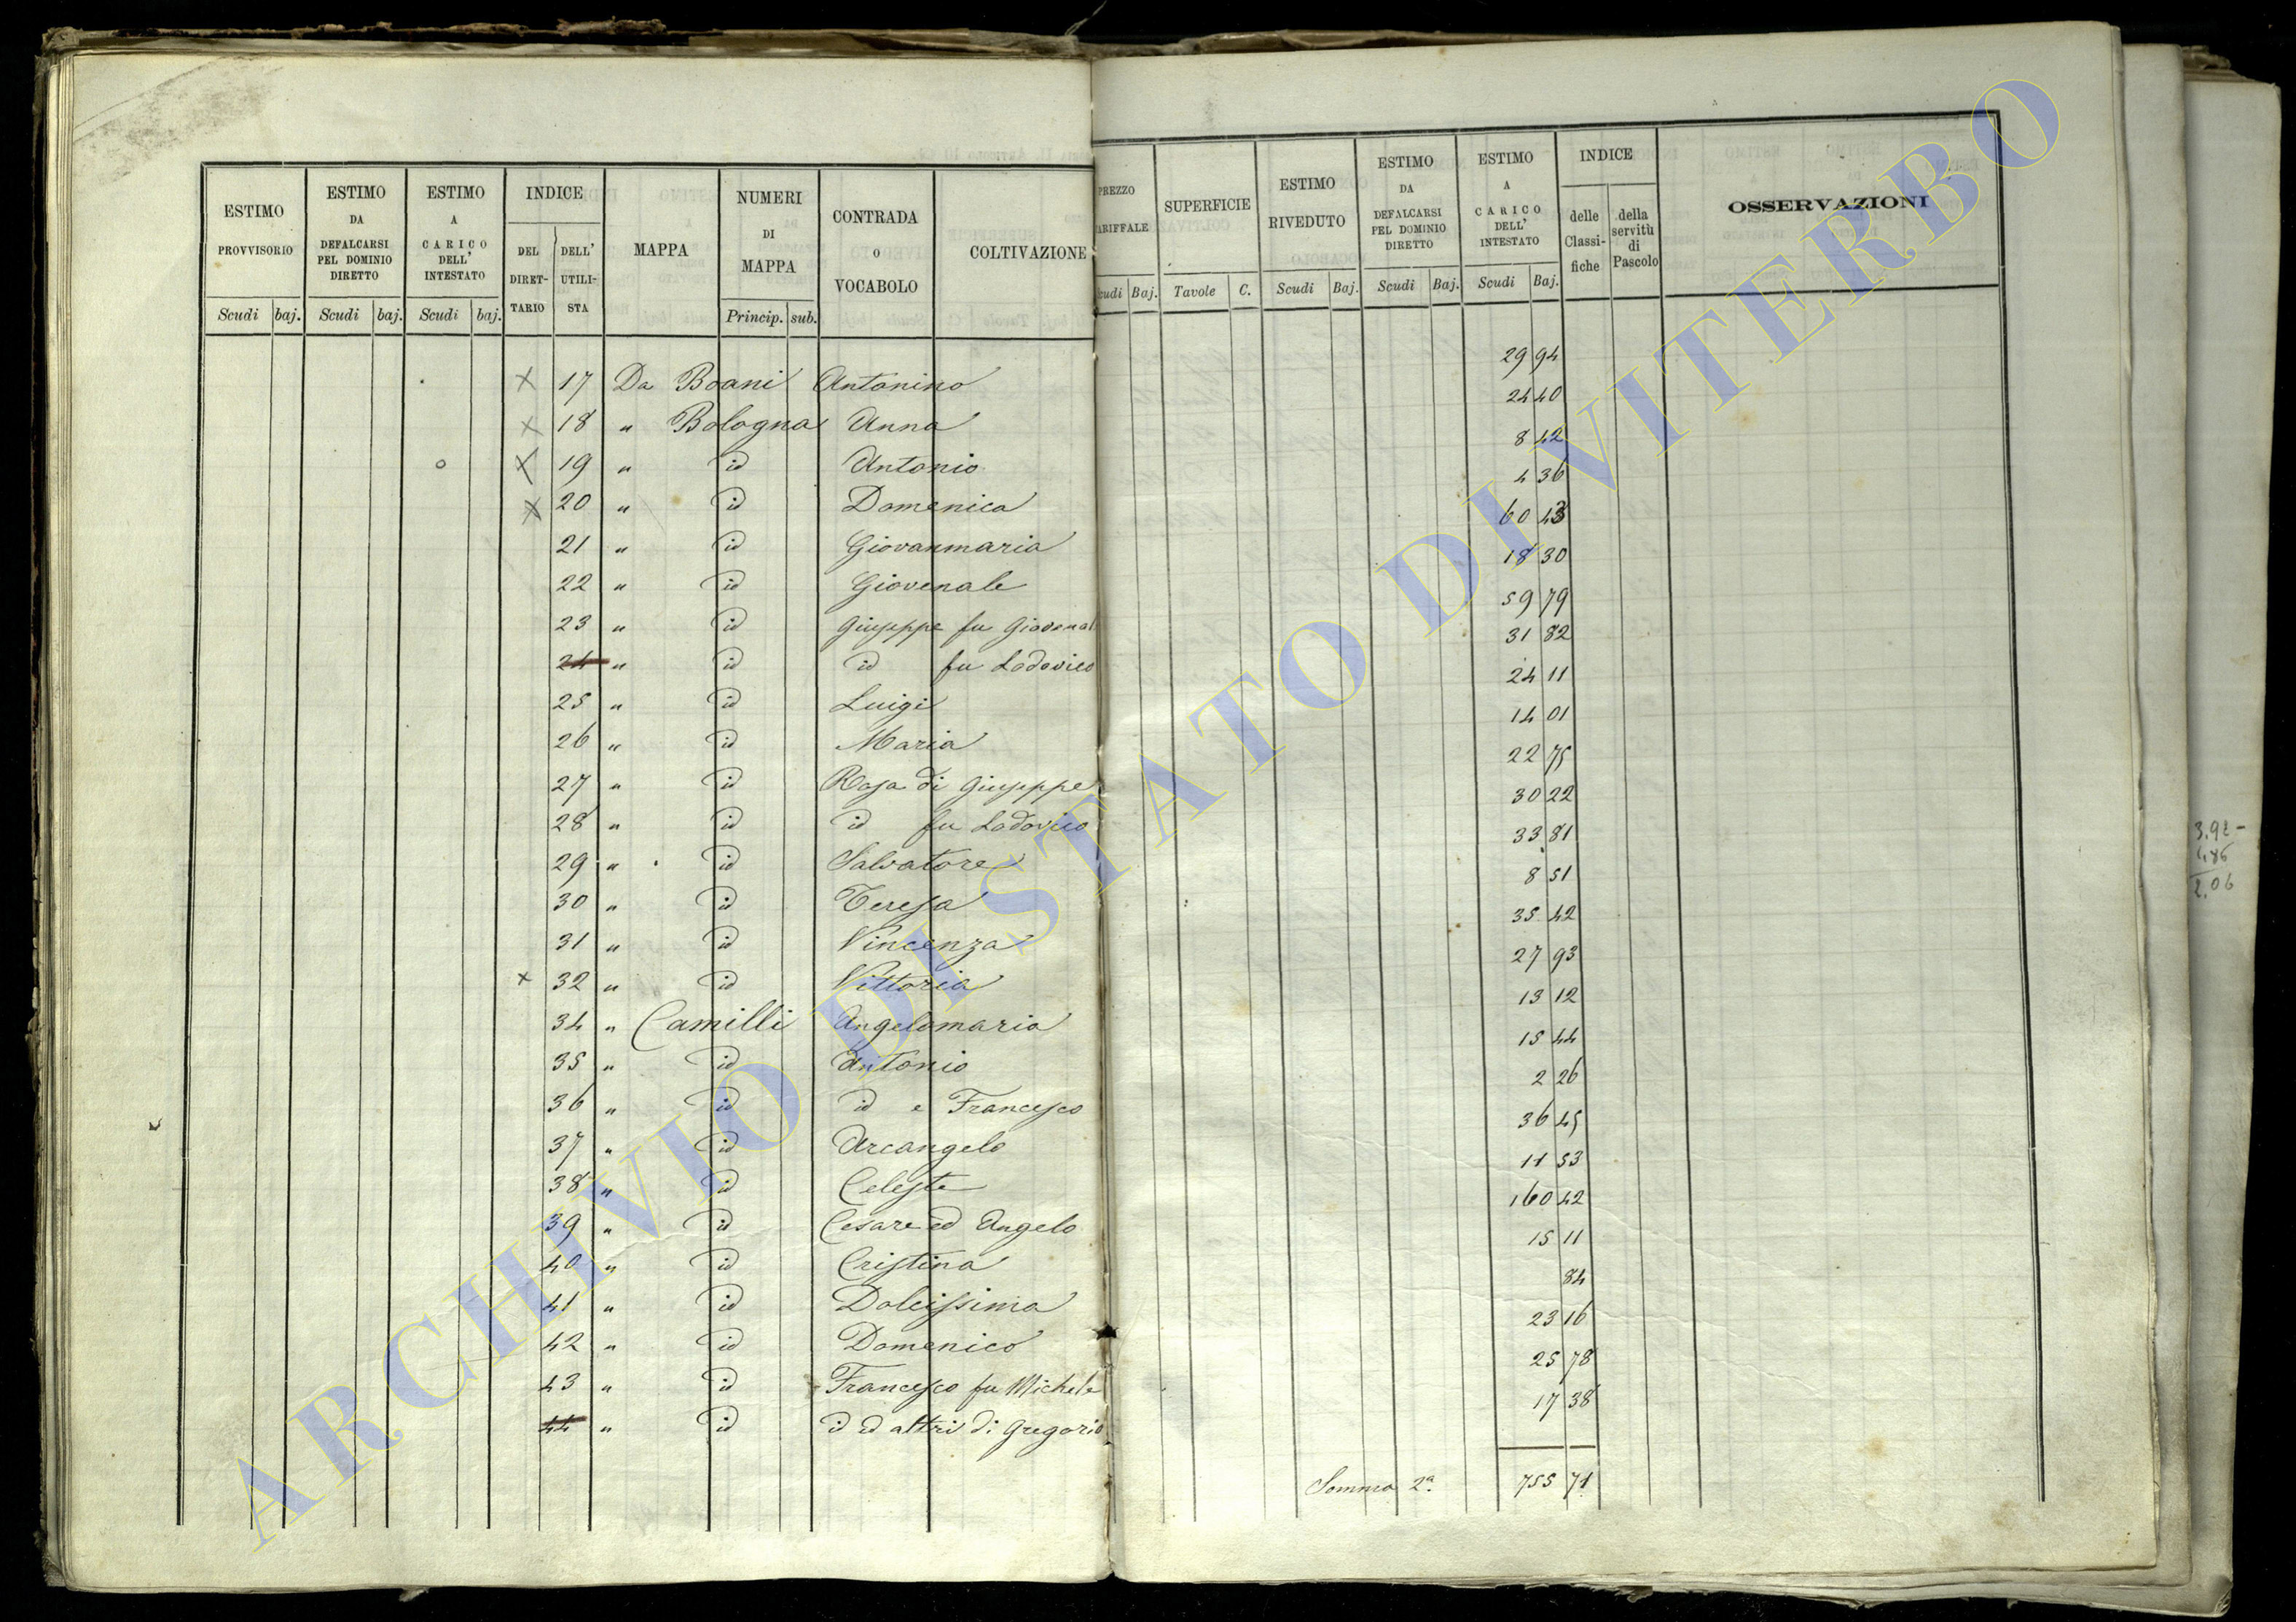 ESTIMO PROVVISORIO
Scudi baj.
ESTIMO DA DEFALCARSI PEL DOMINIO DIRETTO
Scudi baj.
ESTIMO A CARICO DELL' INTESTATO
Scudi baj.
INDICE
DEL DIRET-TARIO
DELL' UTILI-STA
MAPPA
NUMERI DI MAPPA
Princip. sub.
CONTRADA o VOCABOLO
COLTIVAZIONE
PREZZO TARIFFALE
Scudi Baj.
SUPERFICIE
Tavole C.
ESTIMO RIVEDUTO
Scudi Baj.
ESTIMO DA DEFALCARSI PEL DOMINIO DIRETTO
Scudi Baj.
ESTIMO A CARICO DELL' INTESTATO
Scudi Baj.
INDICE
delle Classi-fiche
della servitù di Pascolo
OSSERVAZIONI
x 17 Da Boani Antonino 29 94
x 18 " Bologna Anna 24 40
x 19 " id Antonio 8 42
x 20 " id Domenica 4 36
21 " id Giovanmaria 60 43
22 " id Giovenale 18 30
23 " id Giuseppe fu Giovenal 59 79
24 " id id fu Lodovico 31 82
25 " id Luigi 24 11
26 " id Maria 14 01
27 " id Rosa di Giuseppe 22 75
28 " id id fu Lodovico 30 22
29 " id Salvatore 33 81
30 " id Teresa 8 51
31 " id Vincenza 35 42
x 32 " id Vittoria 27 93
34 " Camilli Angelomaria 13 12
35 " id Antonio 15 44
36 " id id e Francesco 2 26
37 " id Arcangelo 36 45
38 " id Celeste 11 53
39 " id Cesare ed Angelo 160 42
40 " id Cristina 15 11
41 " id Dolcissima 84
42 " id Domenico 23 16
43 " id Francesco fu Michele 25 78
44 " id id ed altri di Gregorio 17 38
Somma 2ª 755 71
2.06
ARCHIVIO DI STATO DI VITERBO